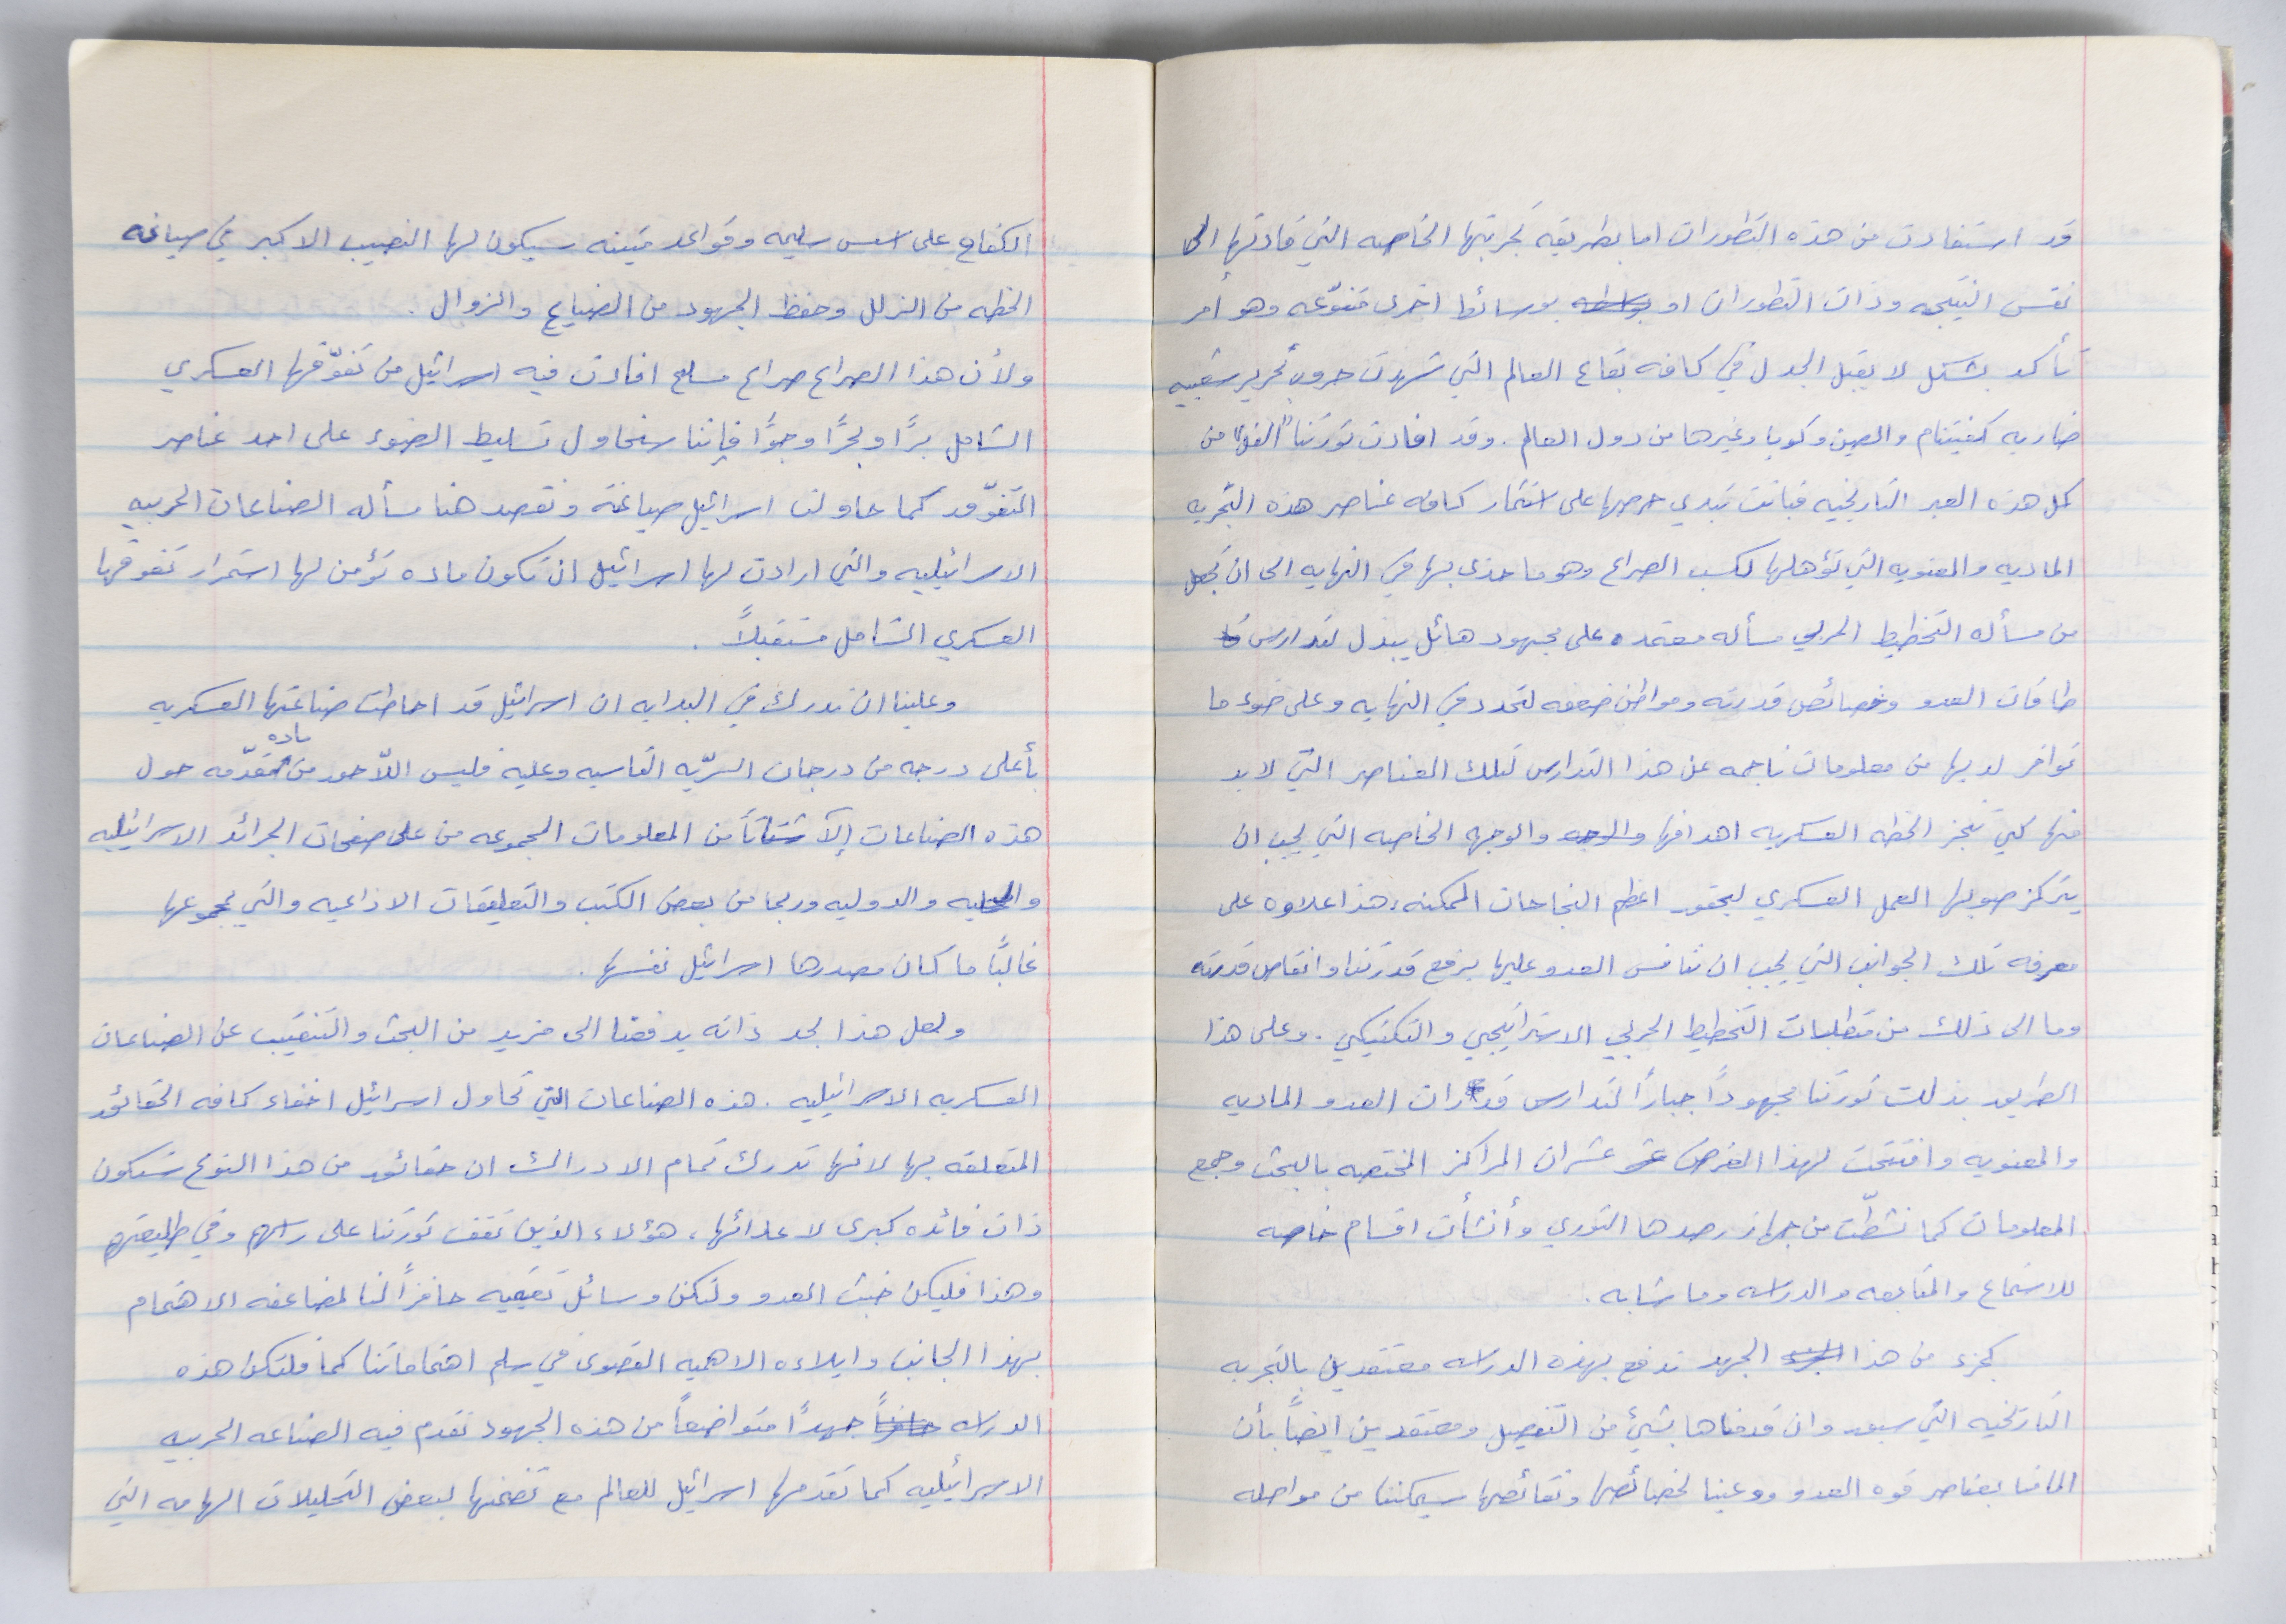 قد استفادت من هذه التطورات اما بطريقه تجربتها الخاصه التي قادتها الى
نفس النتيجه وذات التطورات او بواسطه بوسائط اخرى متنوّعه وهو أمر
تأكد بشكل لا يقبل الجدل في كافه بقاع العالم التي شهدت حروب تحرير شعبيه
ضاريه كفيتنام والصين وكوبا وغيرها من دول العالم . وقد افادت ثورتنا من
كل هذه العبر التاريخيه فباتت تبدي حرصها على استثمار كافه عناصر هذه التجربه
الماديه والمعنويه التي تؤهلها لكسب الصراع وهو ما حذى بها في النهايه الى ان تجعل
من مسأله التخطيط الحربي مسأله معتمده على مجهود هائل يبذل لتدارس
طاقات العدو وخصائص قدرته ومواطن ضعفه لتحدد في النهايه وعلى ضوء ما
توافر لديها من معلومات ناجمه عن هذا التدارس لتلك العناصر التي لا بد
منها كي تنجز الخطه العسكريه اهدافها والوجه والوجهه الخاصه التي يجب ان
يتركز صوبها العمل العسكري ليحقق اعظم النجاحات الممكنه، هذا علاوه على
معرفه تلك الجوانب التي يجب ان ننافس العدو عليها برفع قدرتنا وانقاص قدرته
وما الى ذلك من متطلبات التخطيط الحربي الاستراتيجي والتكتيكي . وعلى هذا
الطريق بذلت ثورتنا مجهوداً جباراً لتدارس قدرات العدو الماديه
والمعنويه وافتتحت لهذا الغرض عشرات المراكز المختصه بالبحث وجمع
المعلومات كما نشطّت من جهاز رصدها الثوري وأنشأت اقسام خاصه
للاستماع والمتابعه والدراسه وما شابه .
كجزء من هذا الجهد ندفع بهذه الدراسه معتقدين بالتجربه
التاريخيه التي سبق وان قدمناها بشيء من التفصيل ومعتقدين ايضاً بأن
المامنا بعناصر قوه العدو ووعينا لخصائصها ونقائصها سيمكننا من مواصله
الكفاح على اسس سليمه وقواعد متينه سيكون لها النصيب الاكبر في صياغه
الخطه من الزلل وحفظ الجهود من الضياع والزوال .
ولأن هذا الصراع صراع مسلح افادت فيه اسرائيل من تفوّقها العسكري
الشامل برًا وبحرًا وجوًا فإننا سنحاول تسليط الضوء على احد عناصر
التفوّق كما حاولت اسرائيل صياغته ونقصد هنا مسأله الصناعات الحربيه
الاسرائيليه والتي ارادت لها اسرائيل ان تكون ماده تؤمن لها استمرار تفوقها
العسكري الشامل مستقبلاً .
وعلينا ان ندرك في البدايه ان اسرائيل قد احاطت صناعتها العسكريه
بأعلى درجه من درجات السرّيه القاسيه وعليه فليس اللّاحق من ماده متقدّمه حول
هذه الصناعات إلّا شتاتاً من المعلومات المجموعه من على صفحات الجرائد الاسرائيليه
والمحليه والدوليه وربما من بعض الكتب والتعليقات الاذاعيه والتي بمجموعها
غالبًا ما كان مصدرها اسرائيل نفسها .
ولعل هذا بحد ذاته يدفعنا الى مزيد من البحث والتنقيب عن الصناعات
العسكريه الاسرائيليه . هذه الصناعات التي تحاول اسرائيل اخفاء كافه الحقائق
المتعلقه بها لانها تدرك تمام الادراك ان حقائق من هذا النوع ستكون
ذات فائده كبرى لاعدائها، هؤلاء الذين تقف ثورتنا على راسهم وفي طليعتهم
وهذا فليكن خبث العدو ولتكن وسائل حافزاً لنا لمضاعفه الاهتمام
بهذا الجانب وايلاءه الاهميه القصوى في سلم اهتماماتنا كما فلتكن هذه
الدراسه حافزاً جهداً متواضعاً من هذه الجهود نقدم فيه الصناعه الحربيه
الاسرائيليه كما تقدمها اسرائيل للعالم مع تضمنها لبعض التحليلات الهامه التي